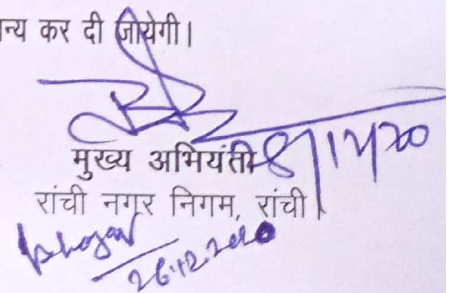 न्य कर दी जायेगी।
मुख्य अभियंता
रांची नगर निगम, रांची।
26.12.2020